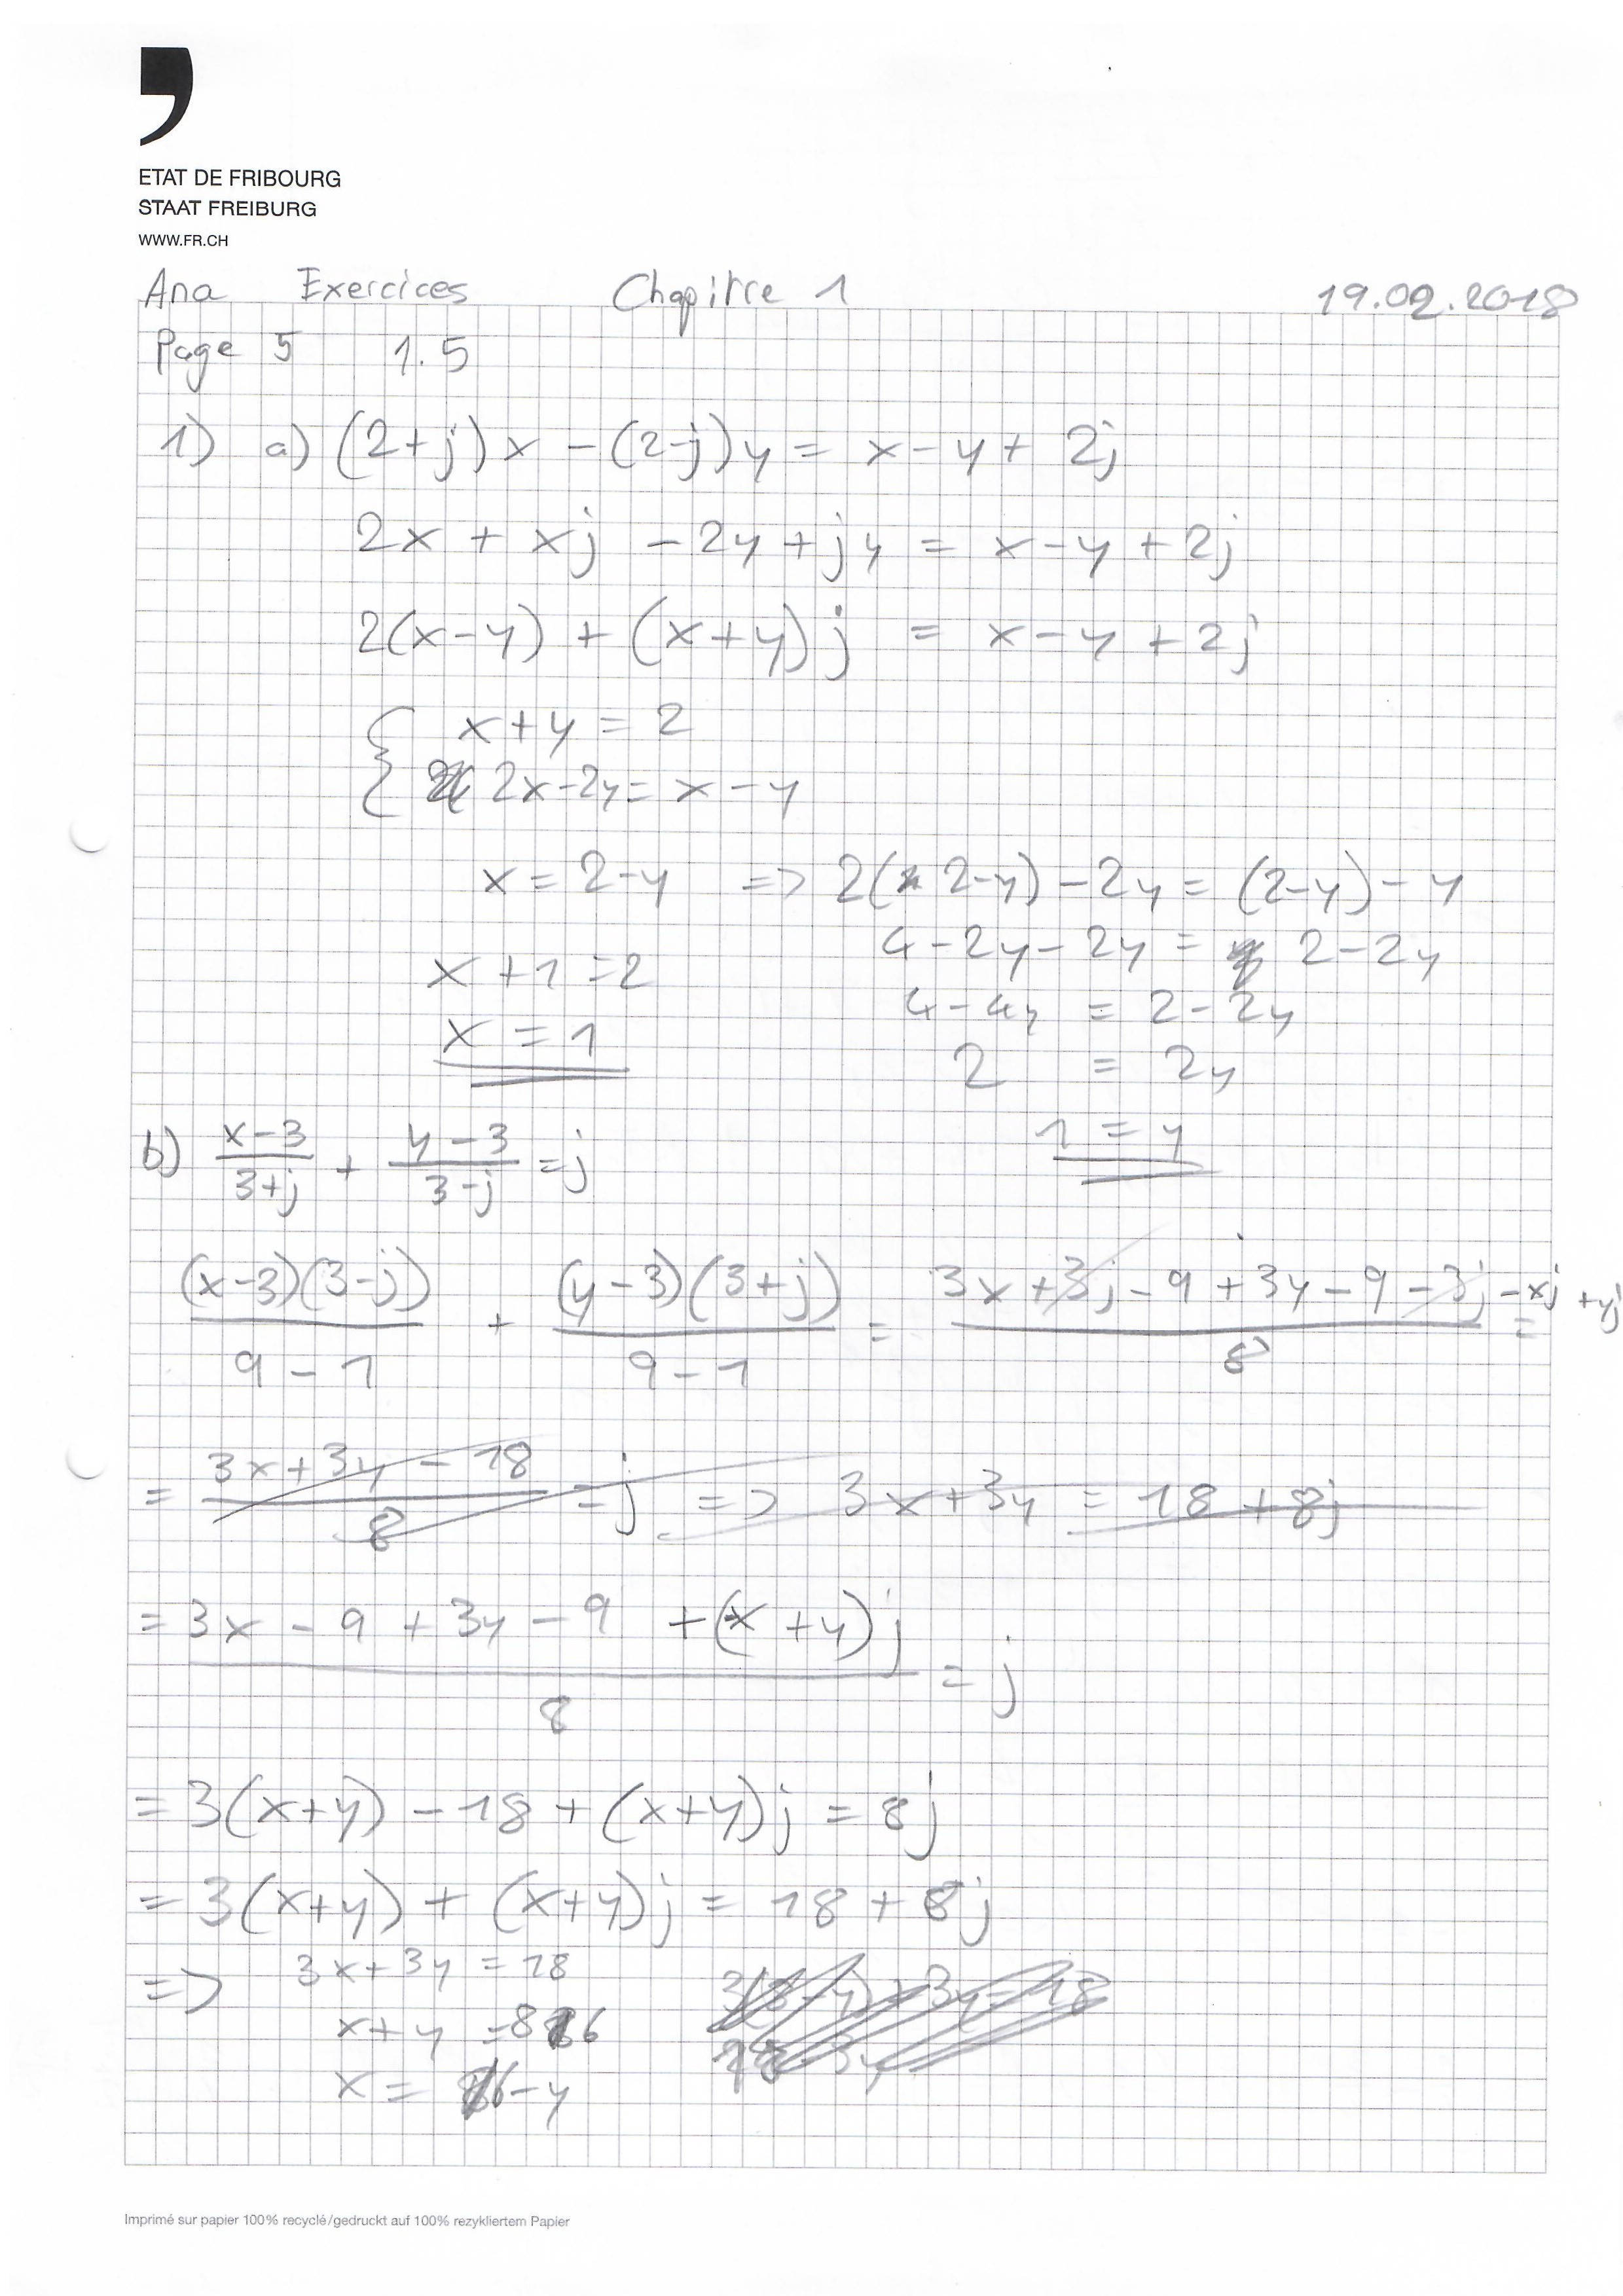 ETAT DE FRIBOURG
STAAT FREIBURG
WWW.FR.CH
Ana Exercices Chapitre 1 19.02.2018
Page 5 1.5
1) a) (2+j)x - (2-j)y = x - y + 2j
2x + xj - 2y + jy = x - y + 2j
2(x-y) + (x+y)j = x - y + 2j
{ x + y = 2
2x - 2y = x - y
x = 2-y => 2(2-y) - 2y = (2-y) - y
4 - 2y - 2y = 2 - 2y
x + 1 = 2
4 - 4y = 2 - 2y
x = 1
2 = 2y
1 = y
b) x-3/3+j + y-3/3-j = j
(x-3)(3-j)/9-1 + (y-3)(3+j)/9-1 = 3x+3j-9+3y-9-3j-xj+yj/8 =
= 3x+3y-18/8 = j => 3x+3y = 18 + 8j
= 3x - 9 + 3y - 9 + (x+y)j/8 = j
= 3(x+y) - 18 + (x+y)j = 8j
= 3(x+y) + (x+y)j = 18 + 8j
=> 3x+3y = 18
x+y = 6
x = 6-y
Imprimé sur papier 100% recyclé/gedruckt auf 100% rezykliertem Papier